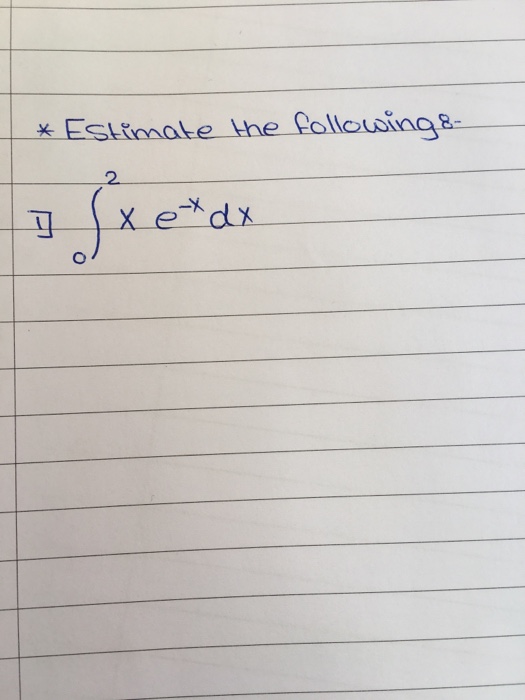 * Estimate the following:-
1] ∫₀² x e⁻ˣ dx